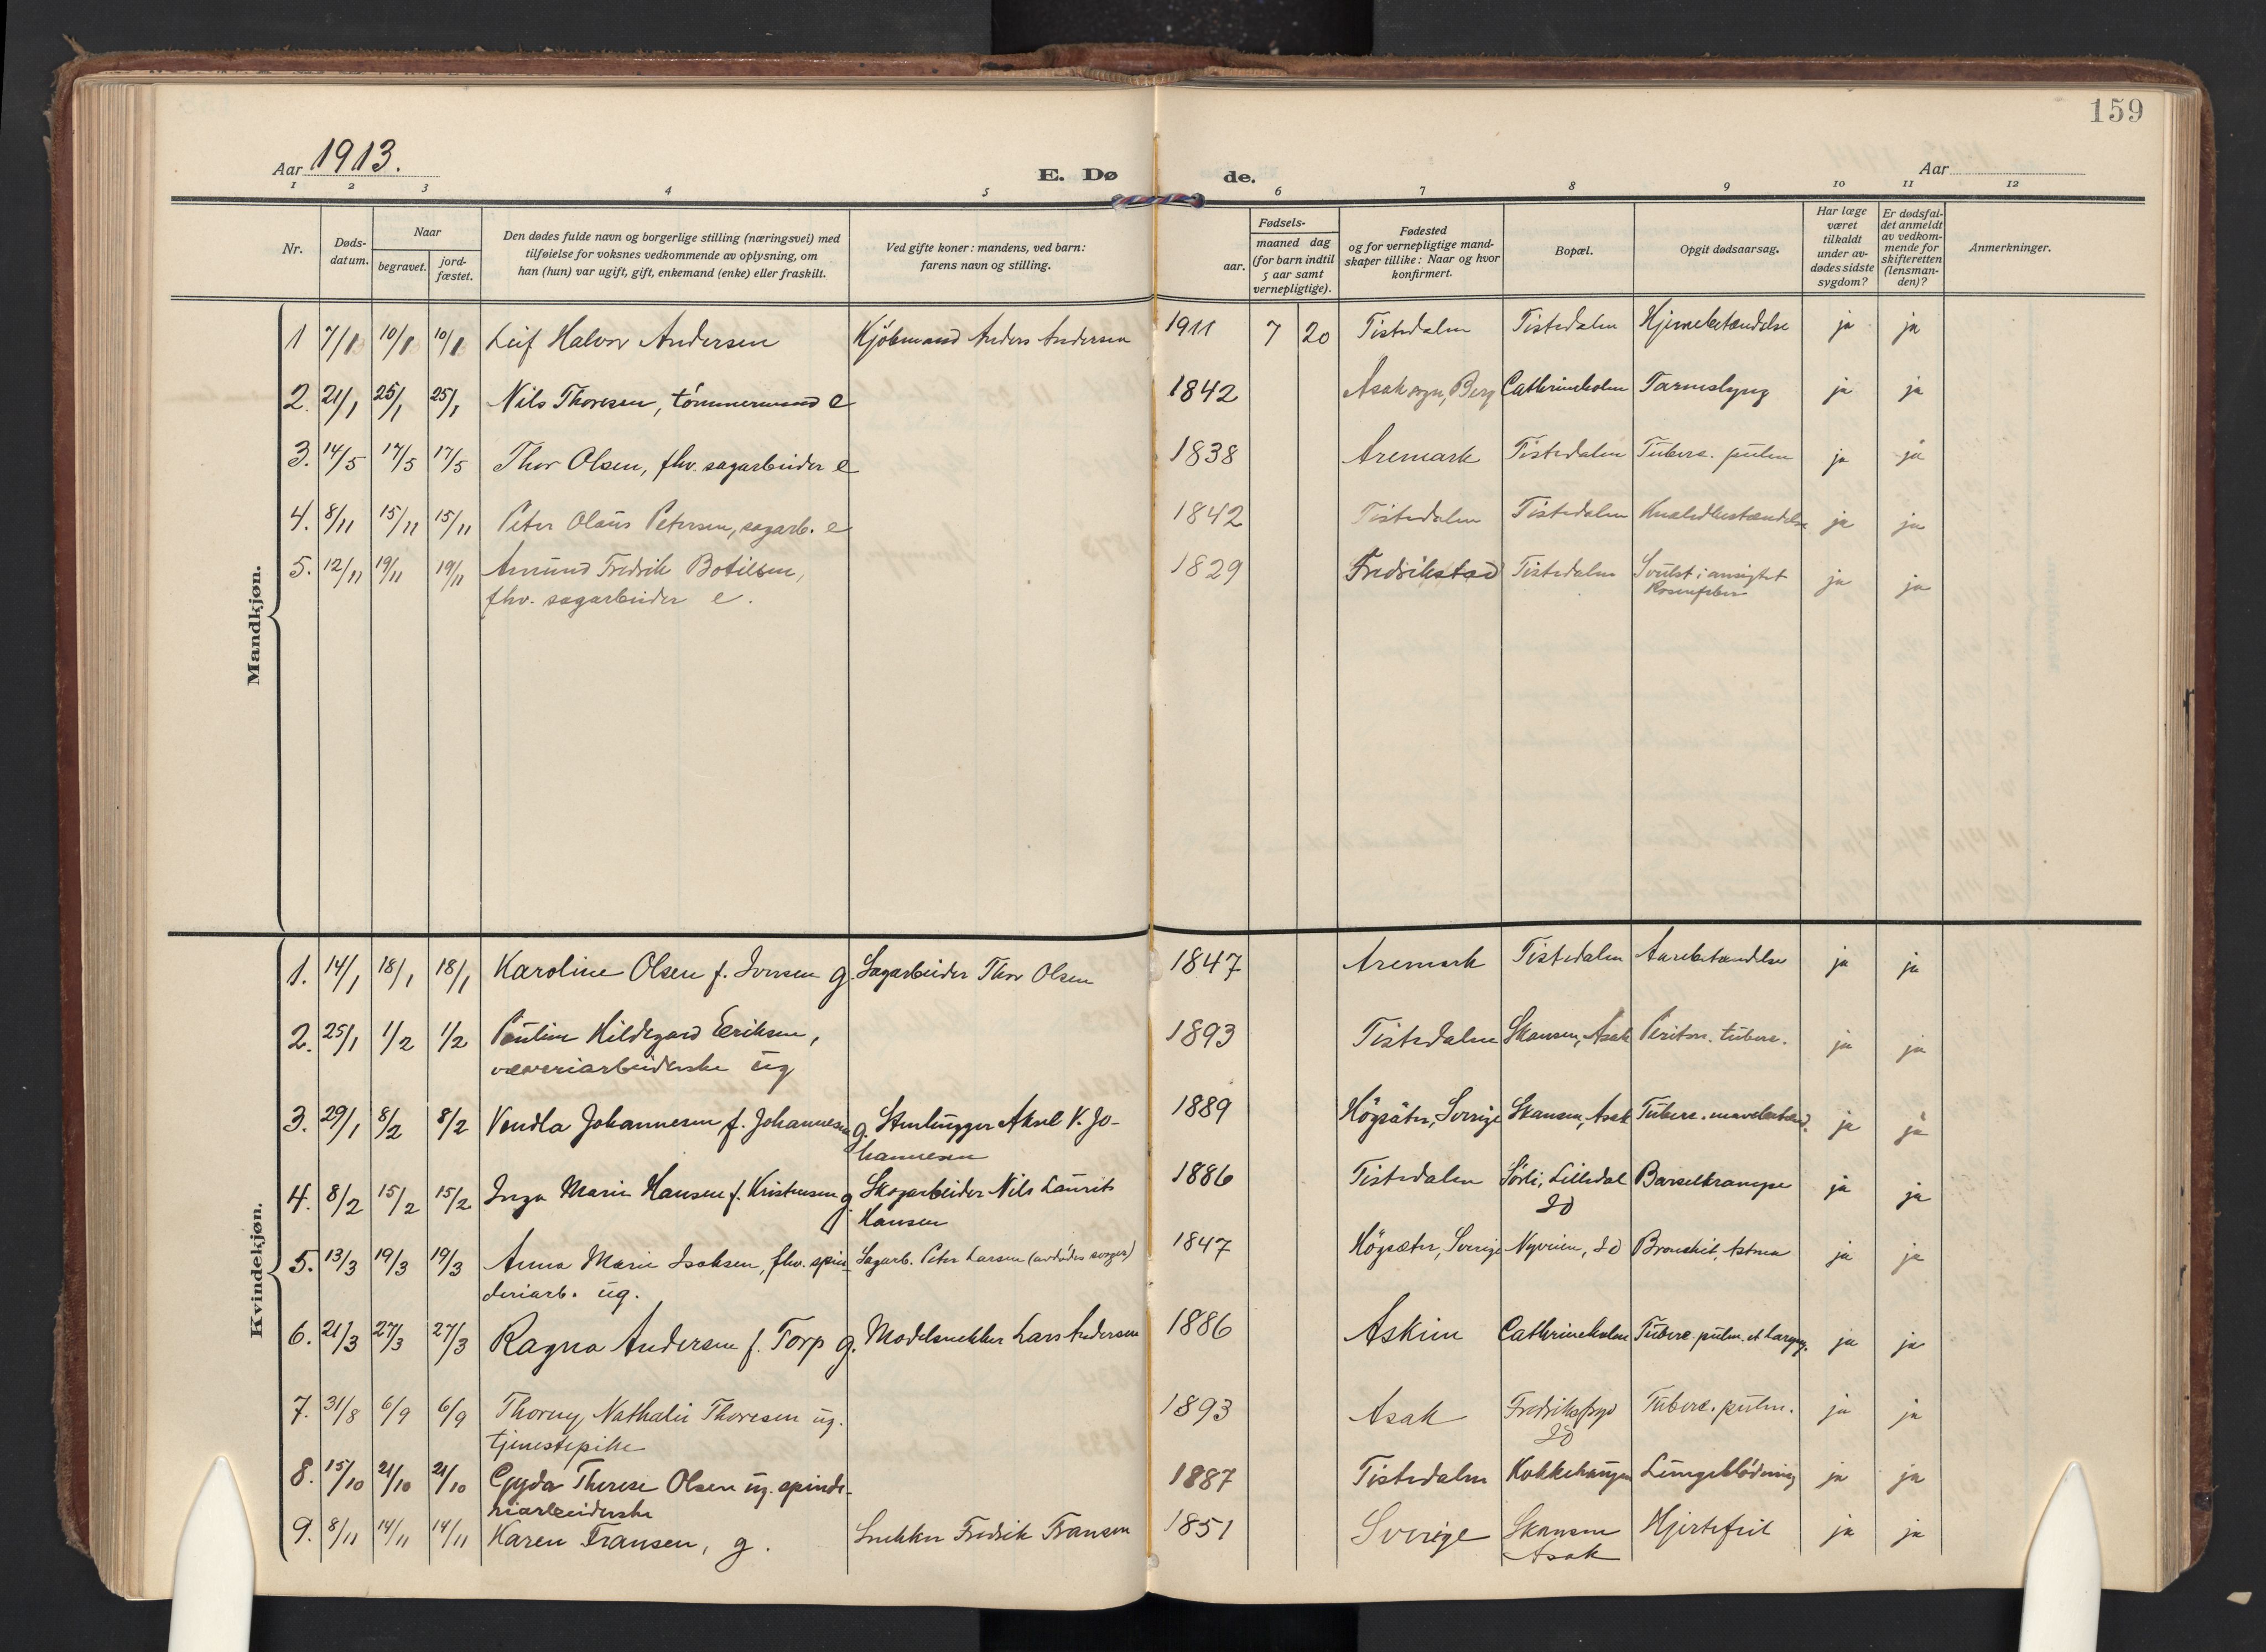 159
Aar 1913.
E. Dø de.
Aar
1 2 3 4 5 6 7 8 9 10 11 12
Nr.
Døds-
datum.
Naar
begravet.
jord-
fæstet.
Den dødes fulde navn og borgerlige stilling (næringsvei) med
tilføielse for voksnes vedkommende av oplysning, om
han (hun) var ugift, gift, enkemand (enke) eller fraskilt.
Ved gifte koner: mandens, ved barn:
farens navn og stilling.
Fødsels-
aar.
maaned dag
(for barn indtil
5 aar samt
vernepligtige).
Fødested
og for vernepligtige mand-
skaper tillike: Naar og hvor
konfirmert.
Bopæl.
Opgit dødsaarsag.
Har læge
været
tilkaldt
under av-
dødes sidste
sygdom?
Er dødsfal-
det anmeldt
av vedkom-
mende for
skifteretten
(lensman-
den)?
Anmerkninger.
Mandkjøn.
1 7/1 10/1 10/1 Leif Halvor Andersen Kjöbmand Anders Andersen 1911 7 20 Tistedalen Tistedalen Hjernebetændelse ja ja
2. 21/1 25/1 25/1 Nils Thoresen, tömmermand e 1842 Asak sogn, Berg Cathrineholm Tarmslyng ja ja
3. 14/5 17/5 17/5 Thor Olsen, fhv. sagarbeider e 1838 Aremark Tistedalen Tuberc. pulm ja ja
4. 8/11 15/11 15/11 Peter Olaus Petersen, sagarb. e 1842 Tistedalen Tistedalen ja ja
5. 12/11 19/11 19/11 Amund Fredrik Botilsen, 1829 Fredrikstad Tistedalen Svulst i ansigtet ja ja
fhv. sagarbeider e. Rosenfeber
Kvindekjøn.
1. 14/1 18/1 18/1 Karoline Olsen f. Iversen g. Sagarbeider Thor Olsen 1847 Aremark Tistedalen Aarebetændelse ja ja
2. 25/1 1/2 1/2 Pauline Hildegard Eriksen, 1893 Tistedalen Skansen, Asak Periton. tuberc. ja ja
væveriarbeiderske ug
3. 29/1 8/2 8/2 Vendla Johannesen f. Johannesen g. Stenhugger Aksel V. Jo- 1889 Högsäter, Sverige Skansen, Asak Tuberc. mavebetænd. ja ja
hannesen
4. 8/2 15/2 15/2 Inga Marie Hansen f. Kristensen g Skogarbeider Nils Laurits 1886 Tistedalen Sörli, Lilledal Barselkrampe ja ja
Hansen Id
5. 13/3 19/3 19/3 Anna Marie Isaksen, fhv. spin- Sagarb. Peter Larsen (avdødes svoger) 1847 Högsæter, Sverige Nyveien, Id Bronchit, Astma ja ja
deriarb. ug.
6. 21/3 27/3 27/3 Ragna Andersen f. Torp g. Modelsnekker Lars Andersen 1886 Askim Cathrineholm Tuberc. pulm. et laryng. ja ja
7. 31/8 6/9 6/9 Thorny Nathalie Thoresen ug. 1893 Asak Fredriksfryd Tuberc. pulm. ja ja
tjenestepike Id
8. 15/10 21/10 21/10 Gyda Therese Olsen ug. spinde- 1887 Tistedalen Kokkehaugen Lungeblödning ja ja
riarbeiderske
9. 8/11 14/11 14/11 Karen Fransen, g. Snekker Fredrik Fransen 1851 Sverige Skansen Hjertefeil ja ja
Asak